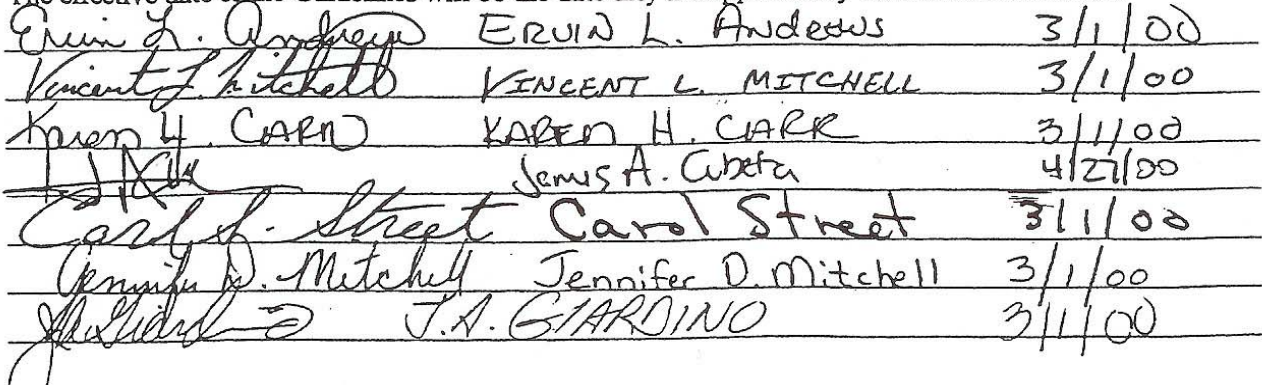 Ervin L. Andrews ERVIN L. Andrews 3/1/00
Vincent L. Mitchell VINCENT L. MITCHELL 3/1/00
Karen H. CARR KAREN H. CARR 3/1/00
James A. Cubeta 4/27/00
Carol S. Street Carol Street 3/1/00
Jennifer D. Mitchell Jennifer D. Mitchell 3/1/00
J.A. GIARDINO 3/1/00